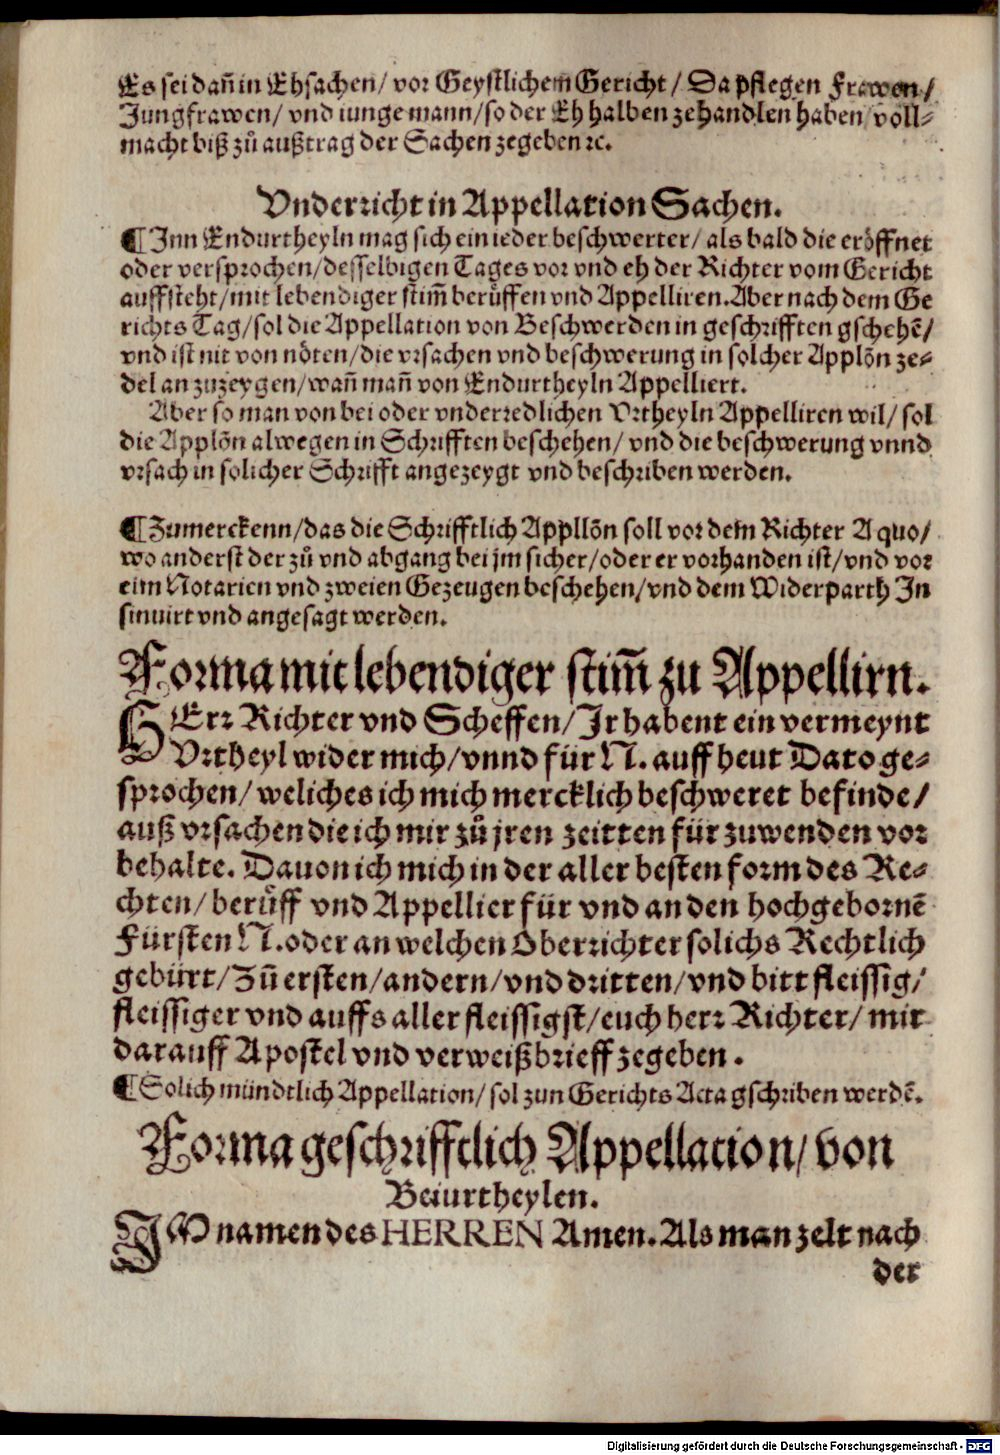 Es sei dañ in Ehsachen/ vor Geystlichem Gericht/ Da pflegen Frawen/
Jungfrawen/ vnd iunge mann/ so der Eh halben ze handlen haben/ voll-
macht biß zů außtrag der Sachen zegeben ꝛc.
Vnderricht in Appellation Sachen.
¶ Inn Endurtheyln mag sich ein ieder beschwerter/ als bald die eröffnet
oder versprochen/ desselbigen Tages vor vnd eh der Richter vom Gericht
auffsteht/ mit lebendiger stim̃ berůffen vnd Appelliren. Aber nach dem Ge
richts Tag/ sol die Appellation von Beschwerden in geschrifften gschehẽ/
vnd ist nit von nöten/ die vrsachen vnd beschwerung in solcher Applõn ze-
del an zuzeygen/ wañ mañ von Endurtheyln Appelliert.
Aber so man von bei oder vnderredlichen Vrtheyln Appelliren wil/ sol
die Applõn alwegen in Schrifften beschehen/ vnd die beschwerung vnnd
vrsach in solicher Schrifft angezeygt vnd beschriben werden.
¶ Zumerckenn/ das die Schrifftlich Appllõn soll vor dem Richter A quo/
wo anderst der zů vnd abgang bei jm sicher/ oder er vorhanden ist/ vnd vor
eim Notarien vnd zweien Gezeugen beschehen/ vnd dem Widerparth In
sinuirt vnd angesagt werden.
Forma mit lebendiger stim̃ zu Appellirn.
HErr Richter vnd Scheffen/ Ir habent ein vermeynt
Vrtheyl wider mich/ vnnd für N. auff heut Dato ge-
sprochen/ weliches ich mich mercklich beschweret befinde/
auß vrsachen die ich mir zů jren zeitten für zuwenden vor
behalte. Dauon ich mich in der aller besten form des Re-
chten/ berůff vnd Appellier für vnd an den hochgebornẽ
Fürsten N. oder an welchen Oberrichter solichs Rechtlich
gebürt/ Zů ersten/ andern/ vnd dritten/ vnd bitt fleissig/
fleissiger vnd auffs aller fleissigst/ euch herr Richter/ mir
darauff Apostel vnd verweißbrieff zegeben.
¶ Solich mündtlich Appellation/ sol zun Gerichts Acta gschriben werdẽ.
Forma geschrifftlich Appellation/ von
Beiurtheylen.
IM namen des HERREN Amen. Als man zelt nach
der
Digitalisierung gefördert durch die Deutsche Forschungsgemeinschaft - DFG